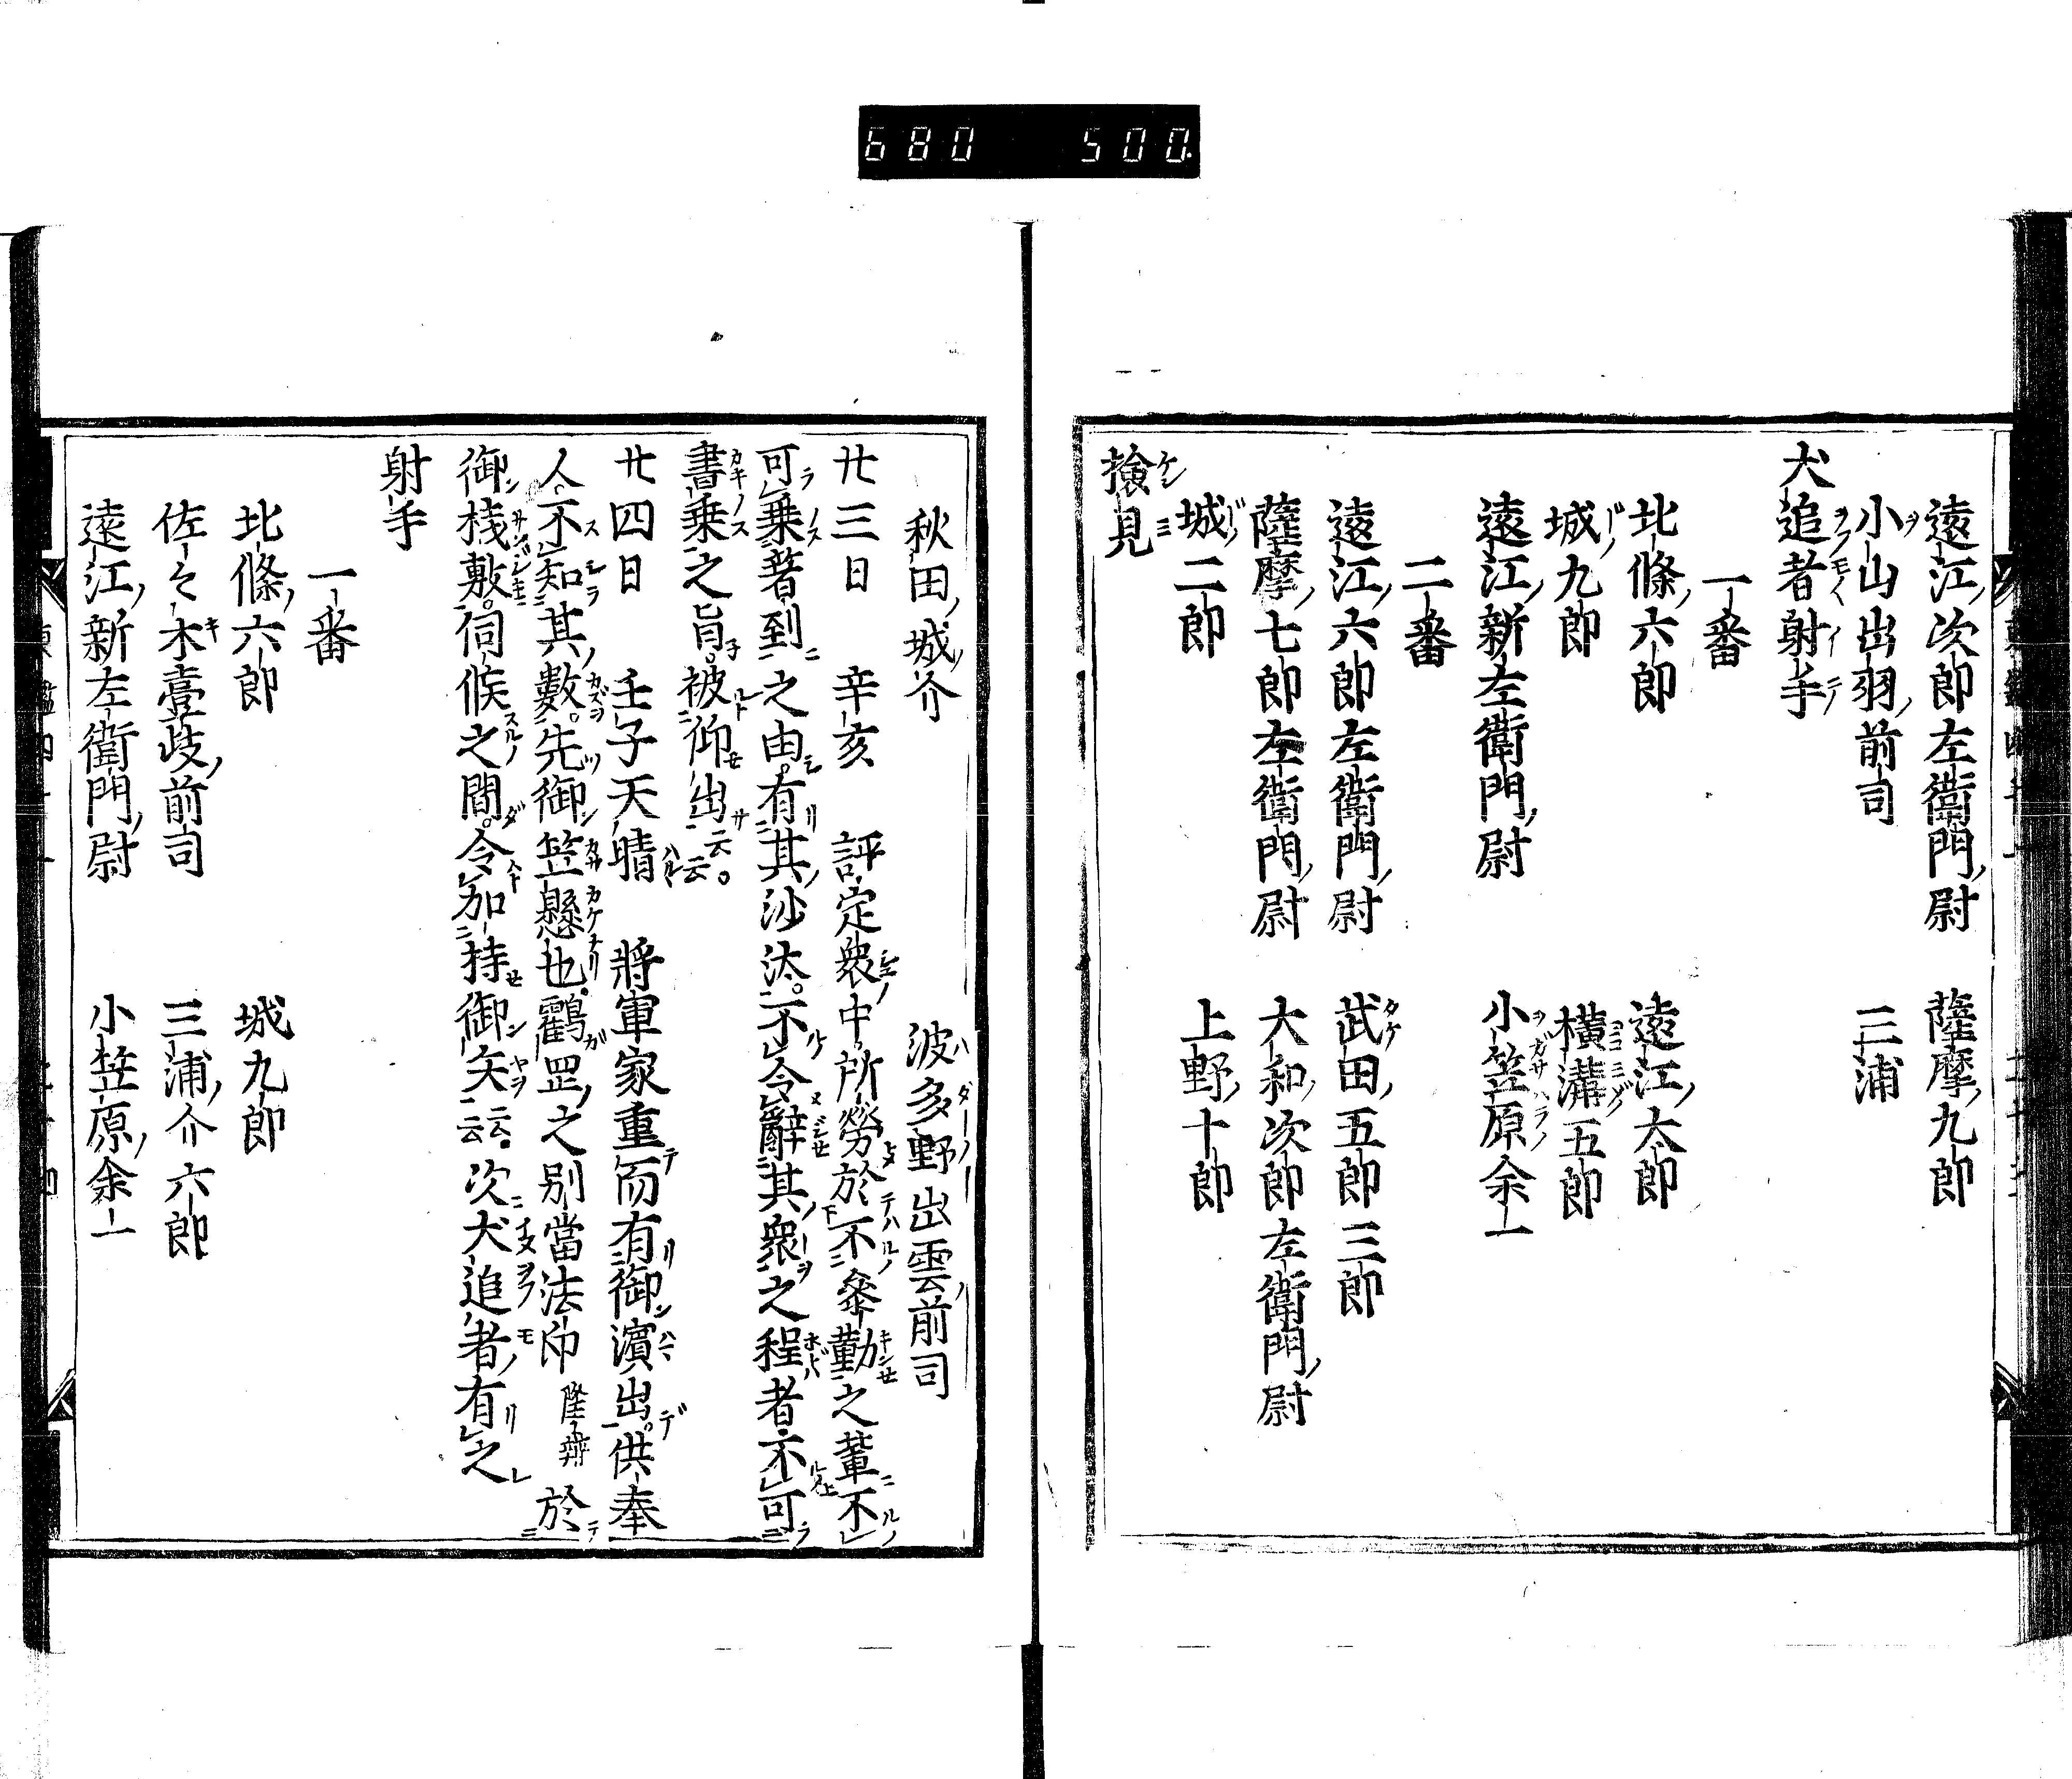 680 500
遠江次郎左衛門尉 薩摩九郎
小山出羽前司 三浦
犬追者射手
一番
北條六郎 遠江太郎
城九郎 横溝五郎
遠江新左衛門尉 小笠原余一
二番
遠江六郎左衛門尉 武田五郎三郎
薩摩七郎左衛門尉 大和次郎左衛門尉
城二郎 上野十郎
撿見
秋田城介 波多野出雲前司
廿三日 辛亥 評定衆中所勞於不參勤之輩不
可乗着到之由有其沙汰。不令辭其衆之程者不可
書乗之旨。被仰出云云。
廿四日 壬子天晴 將軍家重而有御濱出。供奉
人。不知其數。先御笠懸也。鸖罡之別當法印隆辨於
御棧敷。伺候之間。令加持御矢云云。次犬追者有之
射手
一番
北條六郎 城九郎
佐々木壹岐前司 三浦介六郎
遠江新左衛門尉 小笠原余一